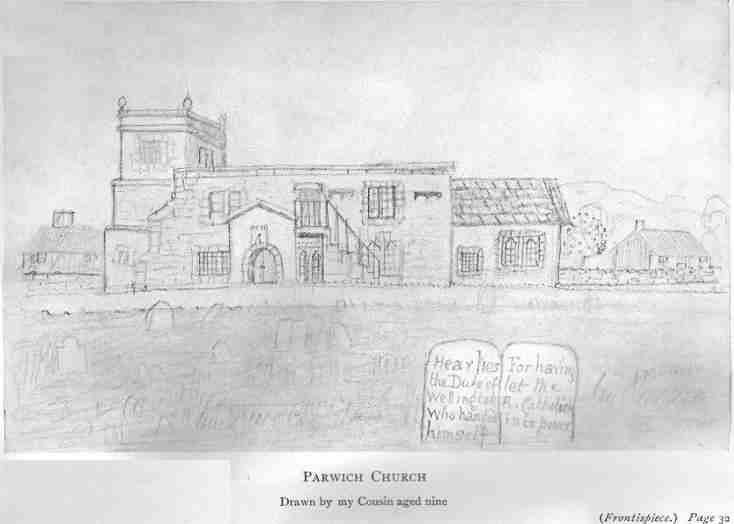 Hear lies
the Duke of
Wellington
Who hang'd
himself
For having
let the
R. Catholics
into power
PARWICH CHURCH
Drawn by my Cousin aged nine
(Frontispiece.) Page 32